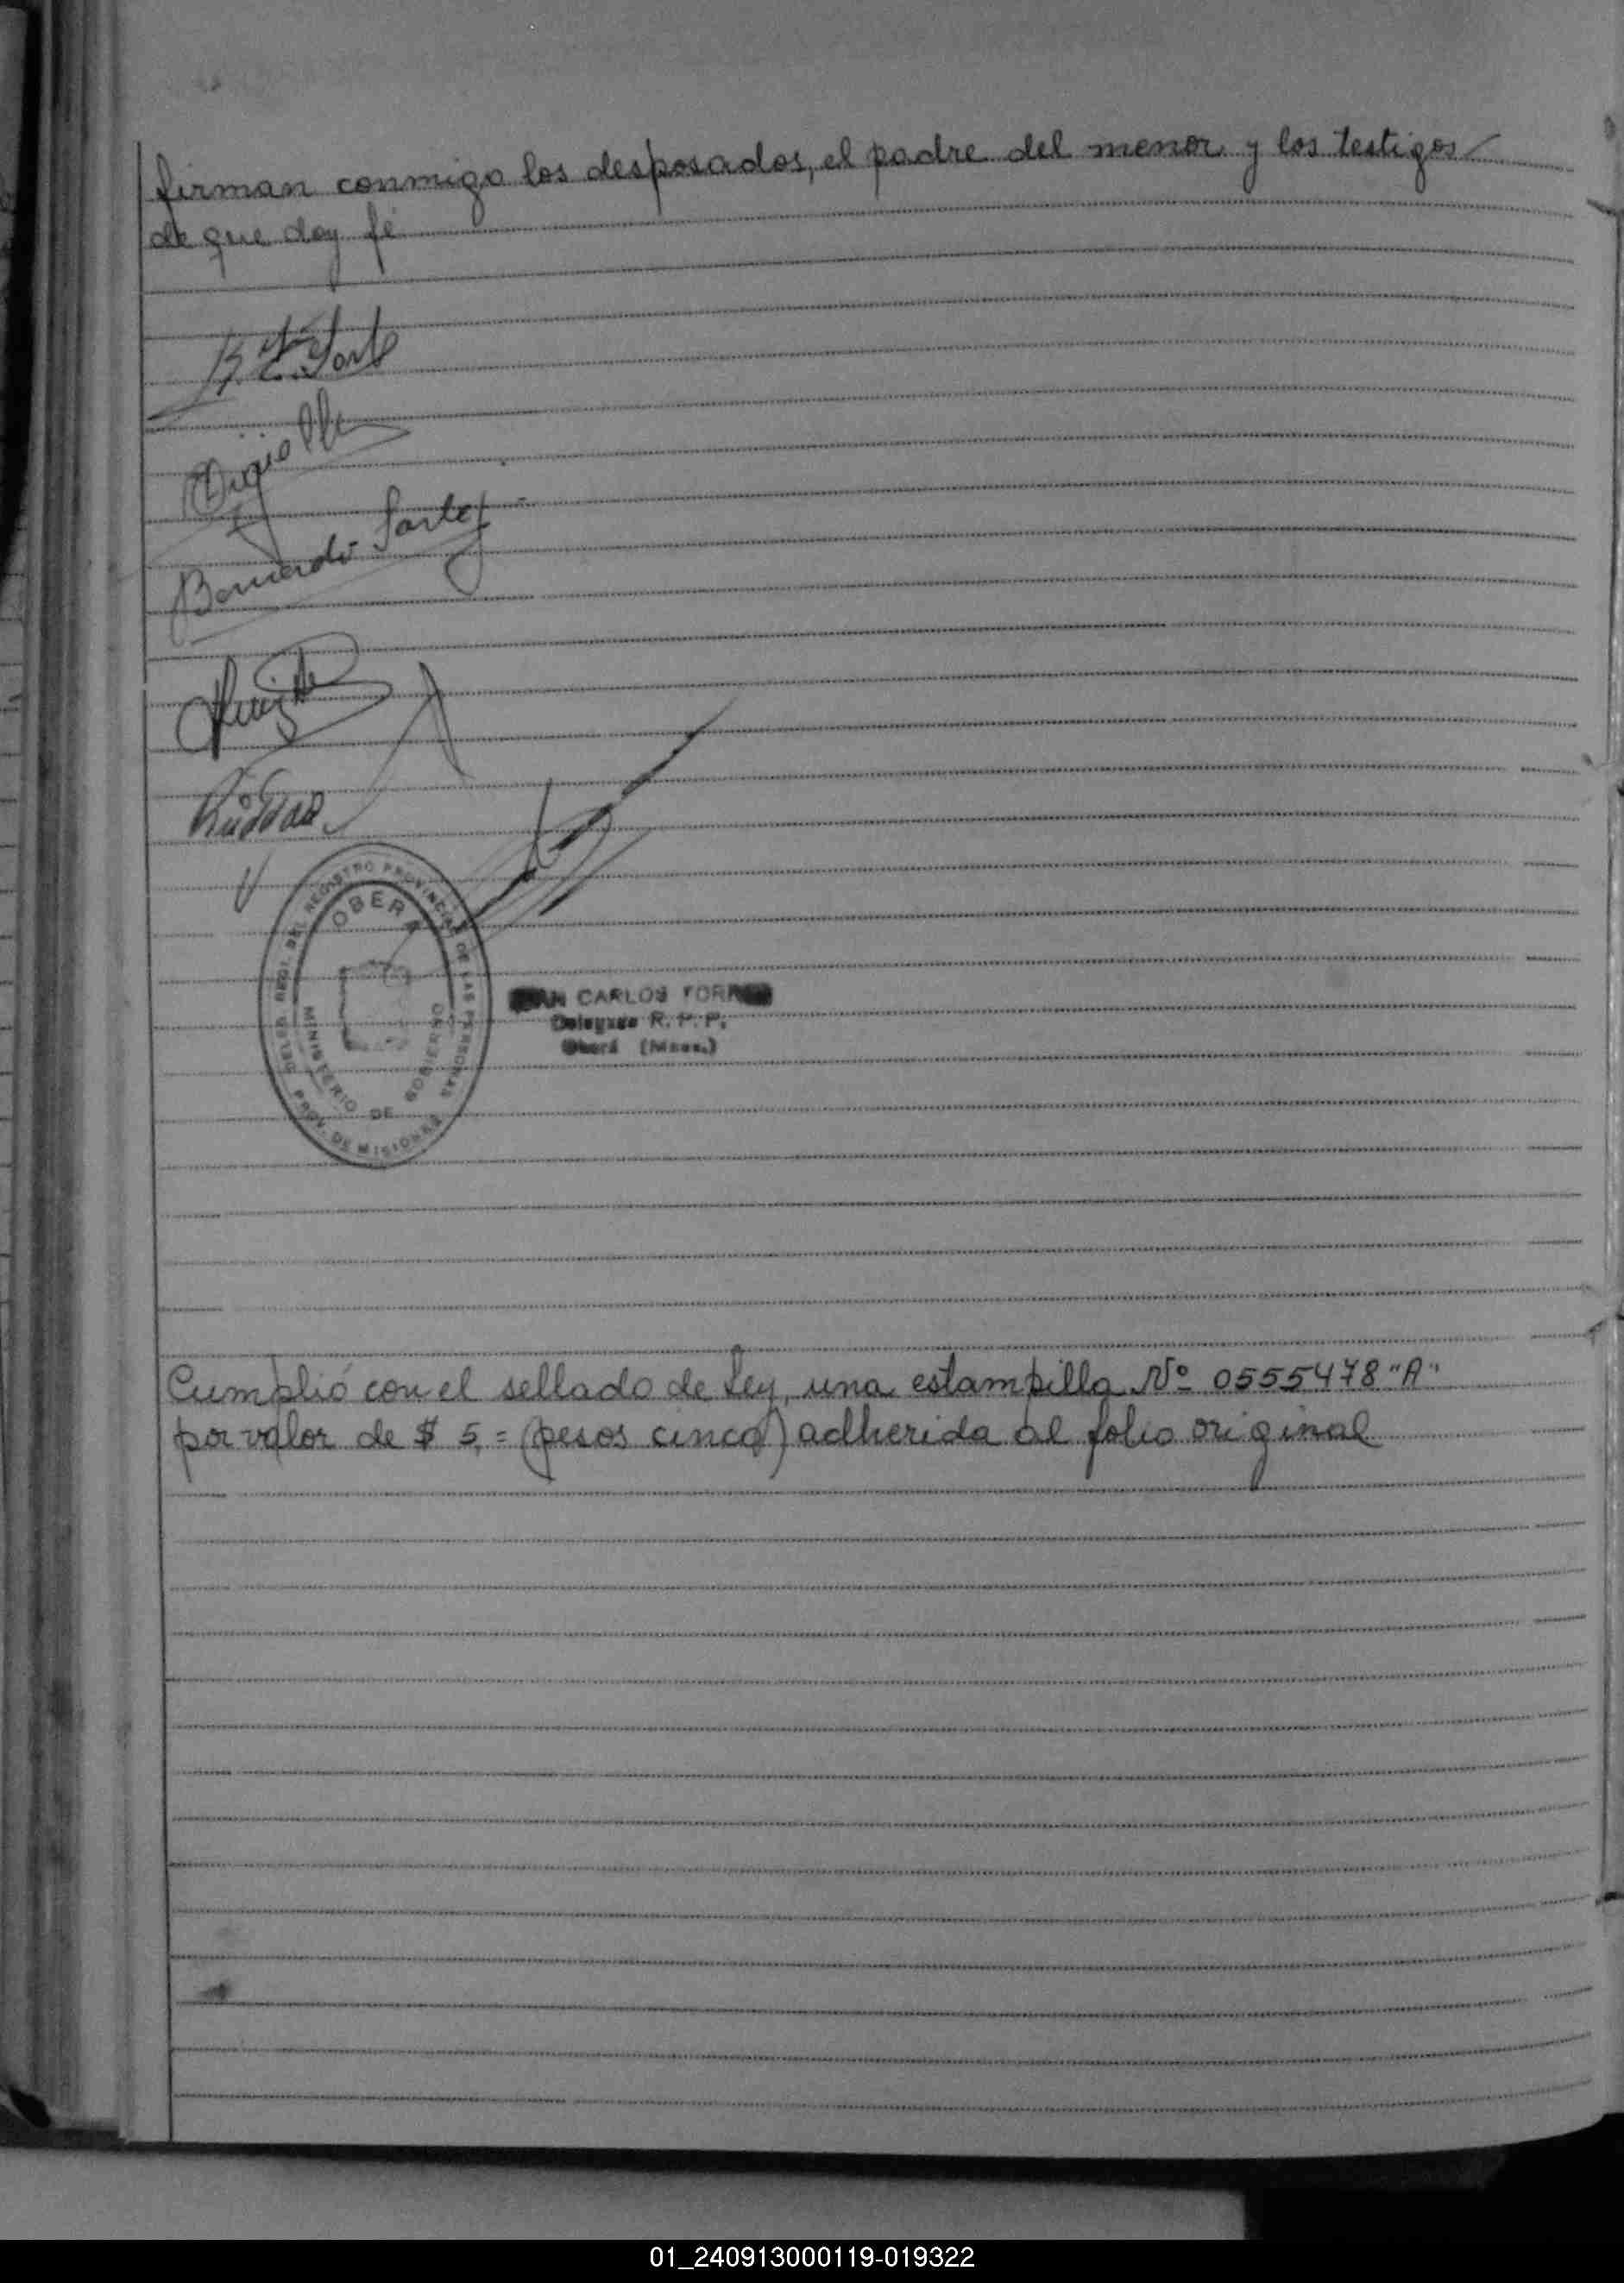 firman conmigo los desposados, el padre del menor y los testigos
de que doy fé
Bernardo
DELEG. REGI. DEL REGISTRO PROVINCIAL DE LAS PERSONAS
OBERA
MINISTERIO DE GOBIERNO
PROV. DE MISIONES
CARLOS TORRES
Delegado R. P. P.
Oberá (Mnes.)
Cumplió con el sellado de Ley, una estampilla Nº 0555478 "A"
por valor de $ 5,= (pesos cinco) adherida al folio original
01_240913000119-019322